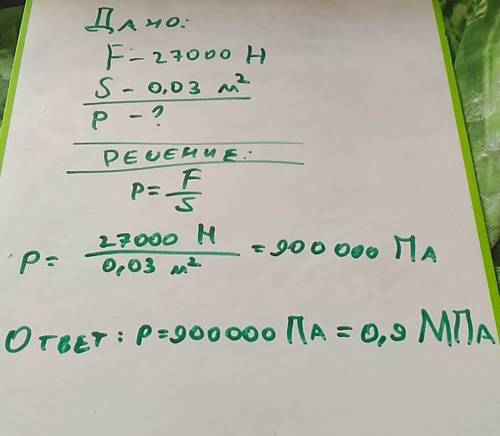 Дано:
F - 27000 Н
S - 0,03 м²
P - ?
РЕШЕНИЕ:
P = F/S
P = 27000 Н / 0,03 м² = 900 000 ПА
ОТВЕТ: P = 900000 ПА = 0,9 МПА